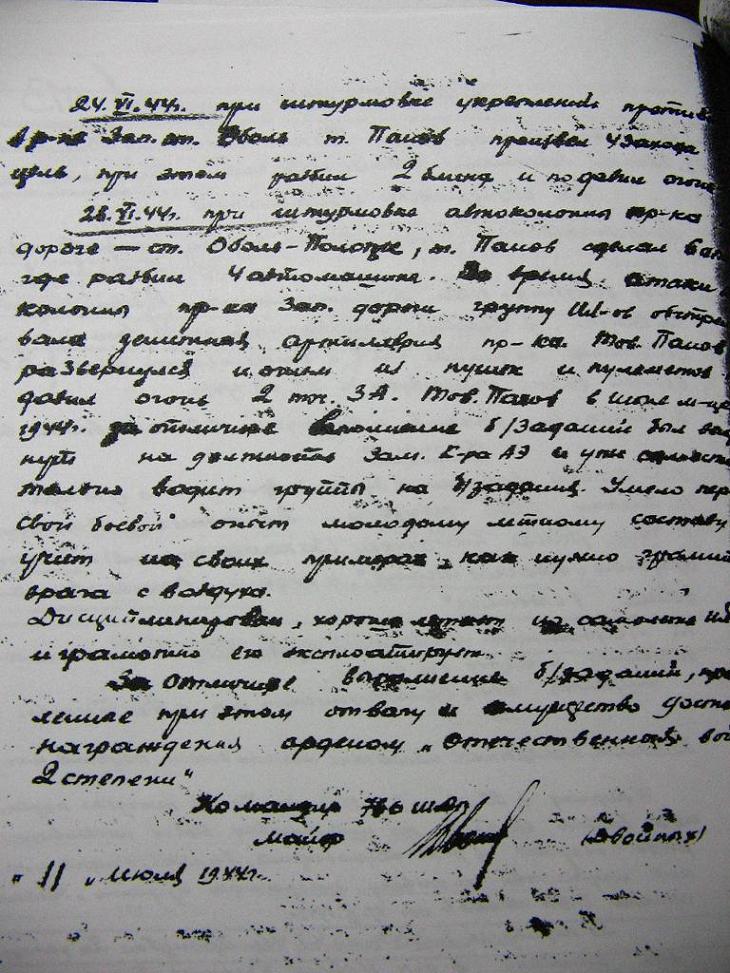 24.VI.44г. при штурмовке укреплений против
в р-не Зап. ст. Оболь т. Попов произвел 4 захода
цель, при этом разбил 2 блинд и подавил огонь
28.VI.44г. при штурмовке автоколонны пр-ка
дороге — ст. Оболь-Полоцк, т. Попов сделал 6 зах
где разбил 4 автомашины. Во время атаки
колонны пр-ка Зап. дороги группу Ил-ов обстре
вала зенитная артилерия пр-ка. Тов. Попов
развернулся и огнем из пушек и пулеметов
давил огонь 2 точ. ЗА. Тов. Попов в июне м-це
1944г. за отличное выполнение б/заданий был выд
нут на должность Зам. К-ра АЭ и уже самосто
тельно водит группы на б/задания. Умело пер
свой боевой опыт молодому летному составу
учит на своих примерах, как нужно громит
врага с воздуха.
Дисциплинирован, хорошо летает на самолете Ил
и грамотно его эксплоатирует.
За отличное выполнение б/заданий, про
ленные при этом отвагу и мужество досто
награждения орденом „Отечественная вой
2 степени"
Командир 766 шап
майор (Двойных)
„11" Июля 1944г.